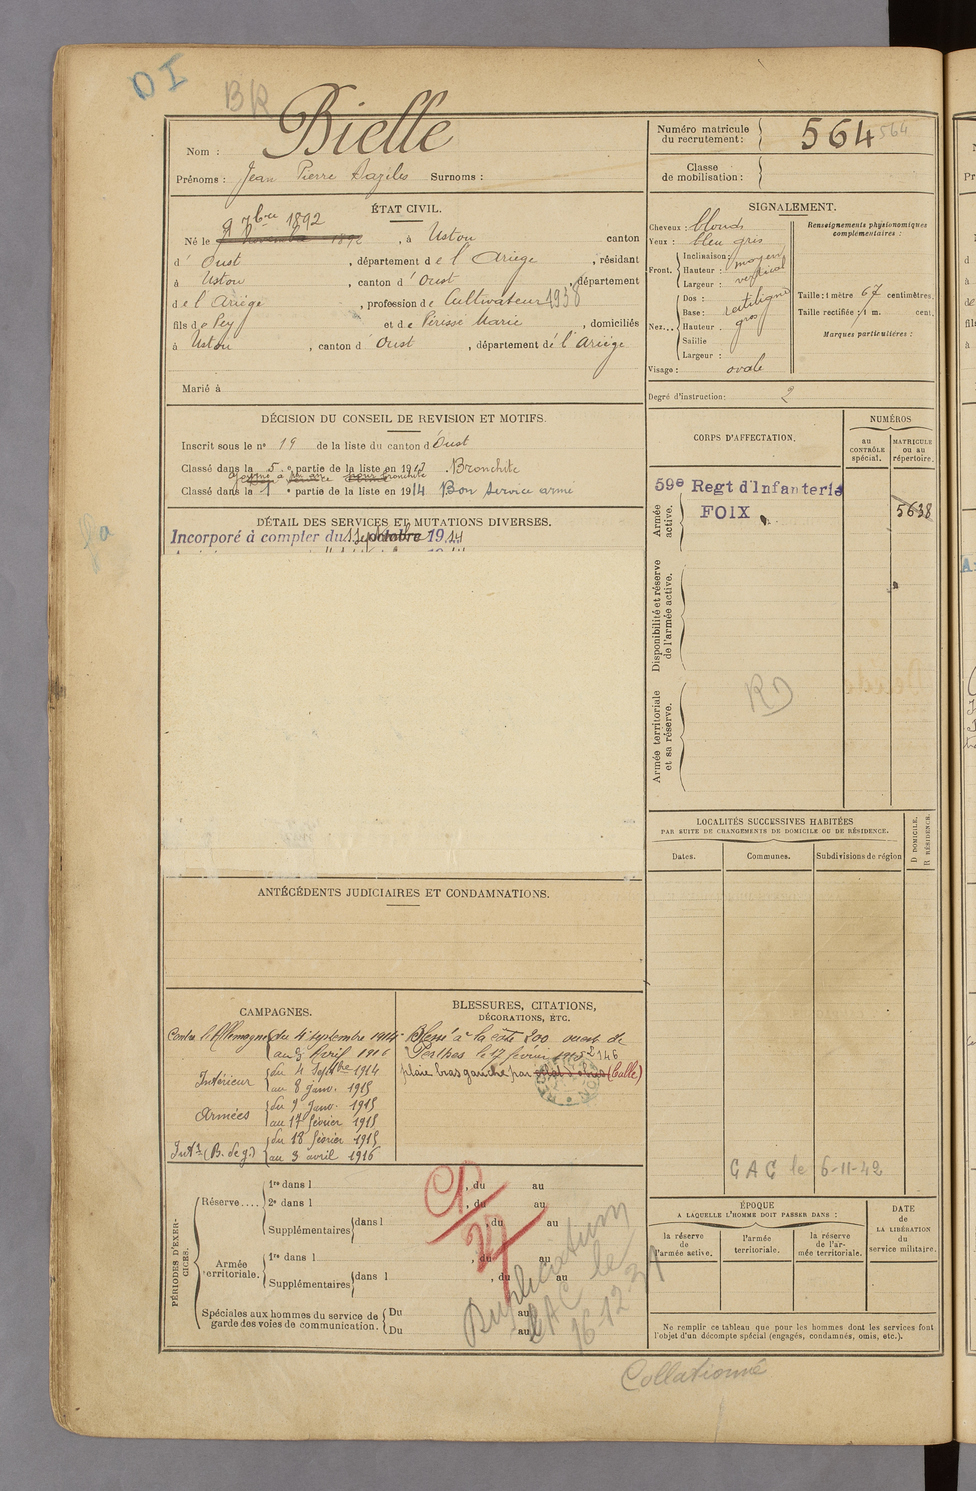 DI
BR
Nom : Bielle
Prénoms : Jean Pierre Dazilis Surnoms :
Numéro matricule du recrutement : 564 564
Classe de mobilisation :
ÉTAT CIVIL.
9 7bre 1892
Né le 9 novembre 1892, à Ustou canton
d' Oust, département de l'Ariège, résidant
à Ustou, canton d'Oust, département
de l'Ariège, profession de Cultivateur 1938
fils de Pey et de Périssé Marie, domiciliés
à Ustou, canton d'Oust, département de l'Ariège
Marié à
SIGNALEMENT.
Cheveux : blonds
Yeux : bleu gris
Front. Inclinaison : moyen
Hauteur : vertical
Largeur :
Nez... Dos : rectiligne
Base :
Hauteur : gros
Saillie
Largeur :
Visage : ovale
Renseignements physionomiques complémentaires :
Taille : 1 mètre 67 centimètres.
Taille rectifiée : 1 m. cent.
Marques particulières :
Degré d'instruction : 2
DÉCISION DU CONSEIL DE REVISION ET MOTIFS.
Inscrit sous le n° 19 de la liste du canton d'Oust
Classé dans la 5e partie de la liste en 1913. Bronchite
Classé dans la 1e partie de la liste en 1914 Bon service armé
DÉTAIL DES SERVICES ET MUTATIONS DIVERSES.
Incorporé à compter du 4 septembre octobre 1914
CORPS D'AFFECTATION.
NUMÉROS
au CONTRÔLE spécial.
MATRICULE ou au répertoire.
Armée active.
59e Regt d'Infanterie
FOIX
5638
Disponibilité et réserve de l'armée active.
Armée territoriale et sa réserve.
RD
LOCALITÉS SUCCESSIVES HABITÉES
PAR SUITE DE CHANGEMENTS DE DOMICILE OU DE RÉSIDENCE.
Dates.
Communes.
Subdivisions de région
D DOMICILE.
R RÉSIDENCE.
CAC le 6-11-42
ANTÉCÉDENTS JUDICIAIRES ET CONDAMNATIONS.
CAMPAGNES.
Contre l'Allemagne du 4 septembre 1914
au 3 Avril 1916
Intérieur du 4 Septbre 1914
au 8 janv. 1915
Armées du 9 janv. 1915
au 17 février 1915
Intr (B. de g.) du 18 février 1915
au 3 avril 1916
BLESSURES, CITATIONS, DÉCORATIONS, ETC.
Blessé à la côte 200 ouest de
Perthes le 17 février 1915
plaie bras gauche par éclat d'obus (balle)
PÉRIODES D'EXERCICES.
Réserve.... 1re dans l , du au
2e dans l , du au
Supplémentaires dans l , du au
Armée territoriale. 1re dans l , du au
Supplémentaires dans l , du au
Spéciales aux hommes du service de garde des voies de communication. Du au
Du au
Duplicatum
CAC le
16-12-31
ÉPOQUE
A LAQUELLE L'HOMME DOIT PASSER DANS :
la réserve de l'armée active.
l'armée territoriale.
la réserve de l'armée territoriale.
DATE de LA LIBÉRATION du service militaire.
Ne remplir ce tableau que pour les hommes dont les services font l'objet d'un décompte spécial (engagés, condamnés, omis, etc.).
Collationné